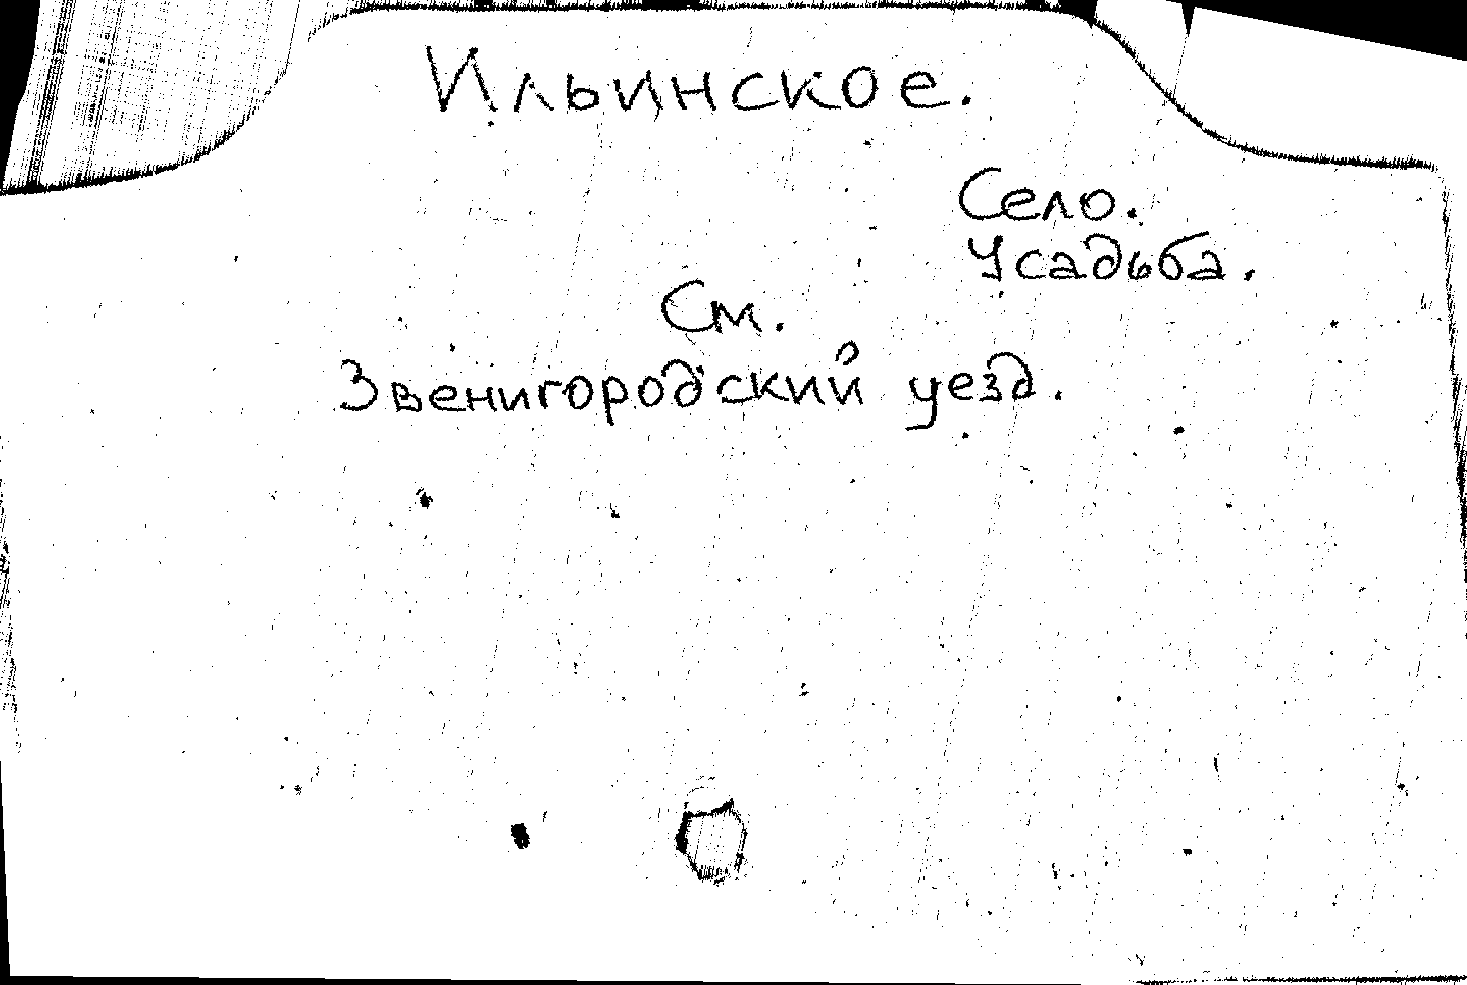 Ильинское.
Село.
Усадьба.
См.
Звенигородский уезд.